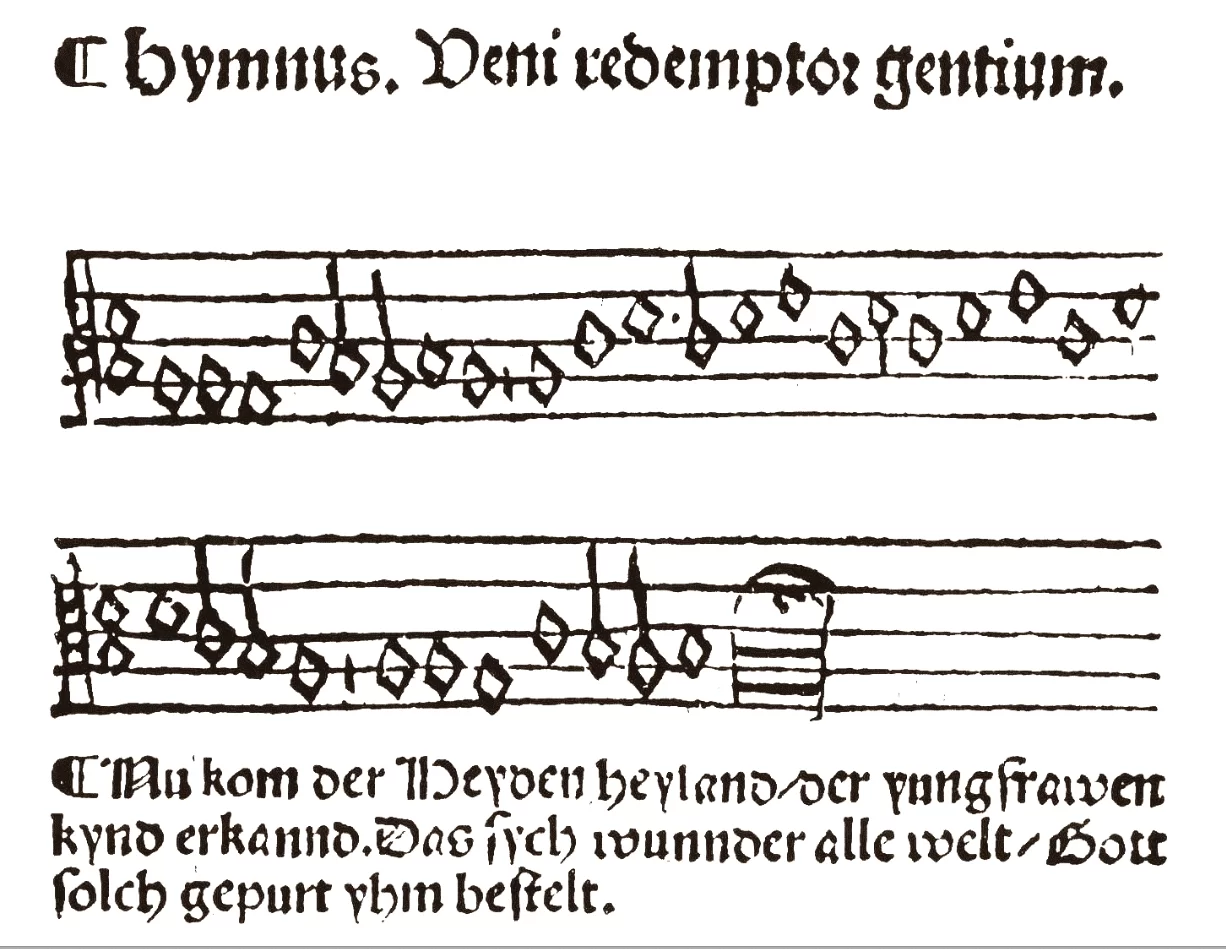 ¶ Hymnus. Veni redemptor gentium.
¶ Nu kom der Heyden heyland/der yungfrawen
kynd erkannd. Das sych wunnder alle welt/Gott
solch gepurt yhm bestelt.